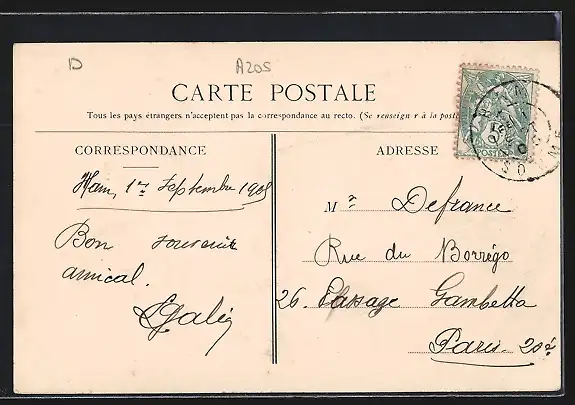 D
A205
CARTE POSTALE
Tous les pays étrangers n'acceptent pas la correspondance au recto. (Se renseign r à la post
CORRESPONDANCE
ADRESSE
Ham, 1er Septembre 1905
Bon souvenir
amical.
Mr Defrance
Rue du Borrégo
26. Passage Gambetta
Paris. 20e
POSTES
SOMME